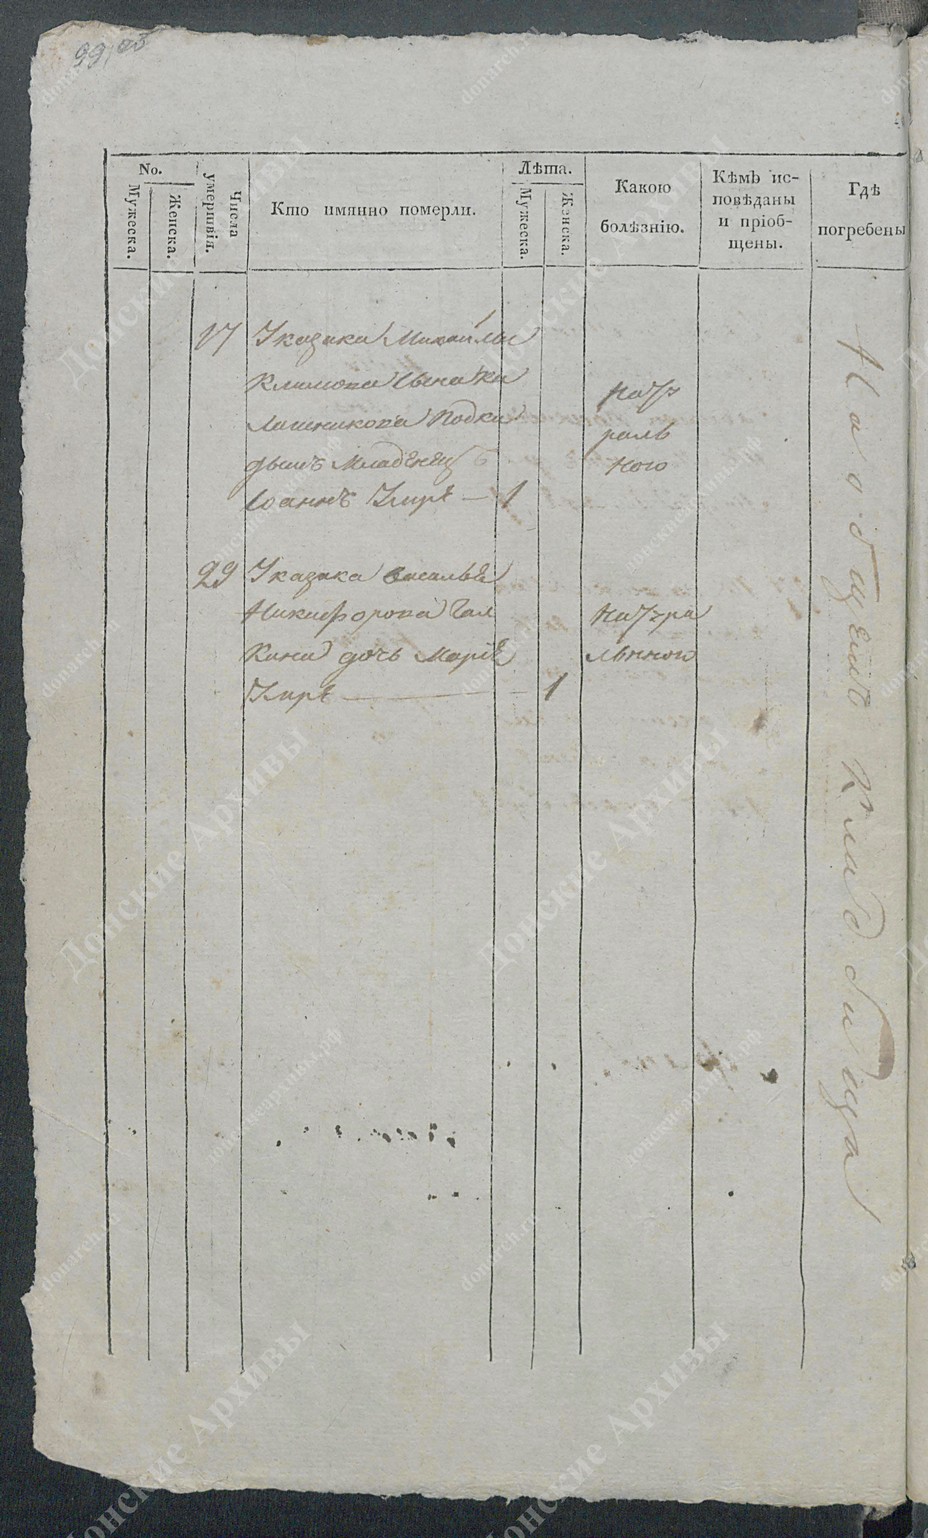 No.
Мужеска.
Женска.
Числа умершвія.
Кто имянно померли.
Лѣта.
Мужеска.
Женска.
Какою
болѣзнію.
Кѣмъ ис-
повѣданы
и пріоб-
щены.
Гдѣ
погребены
17 Указака Михайлы
Климова Сына Ка
лашникова Подки
дышъ Младенец
Іоаннъ Умре — 1
нату
раль
ною
29 Указака Василья
Никифорова Гал
кина дочь Марія
Умре — 1
натура
льною
На общемъ Кладбища